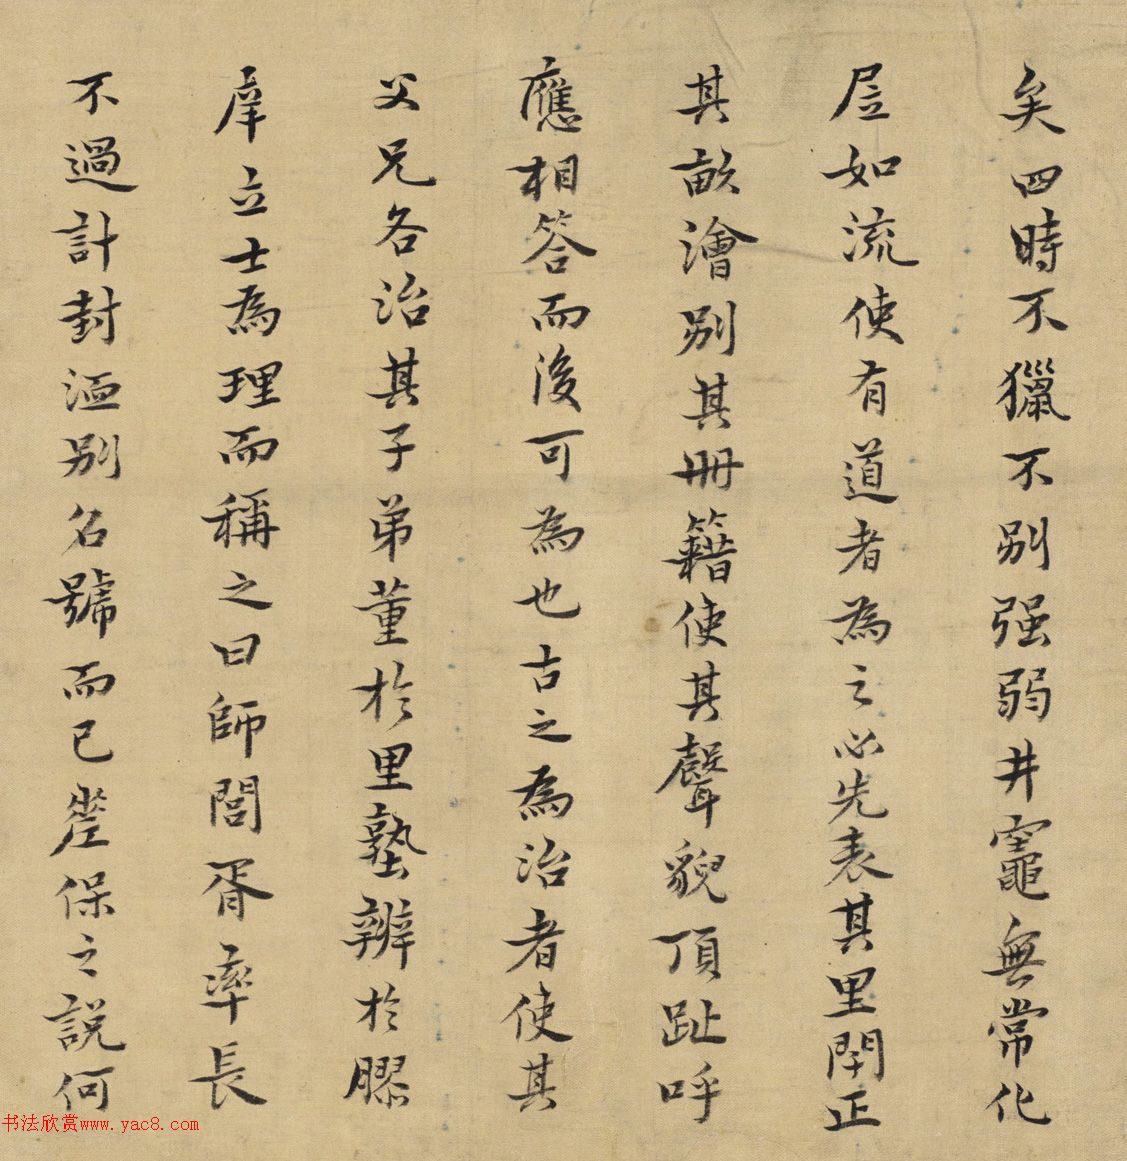 矣四時不獵不別强弱井竈無常化
居如流使有道者為之必先表其里閈正
其畝澮別其冊籍使其聲貌頂趾呼
應相答而後可為也古之為治者使其
父兄各治其子弟董於里塾辨於膠
庠立士為理而稱之曰師閭胥率長
不過計封洫別名號而已耋保之説何
书法欣赏www.yac8.com